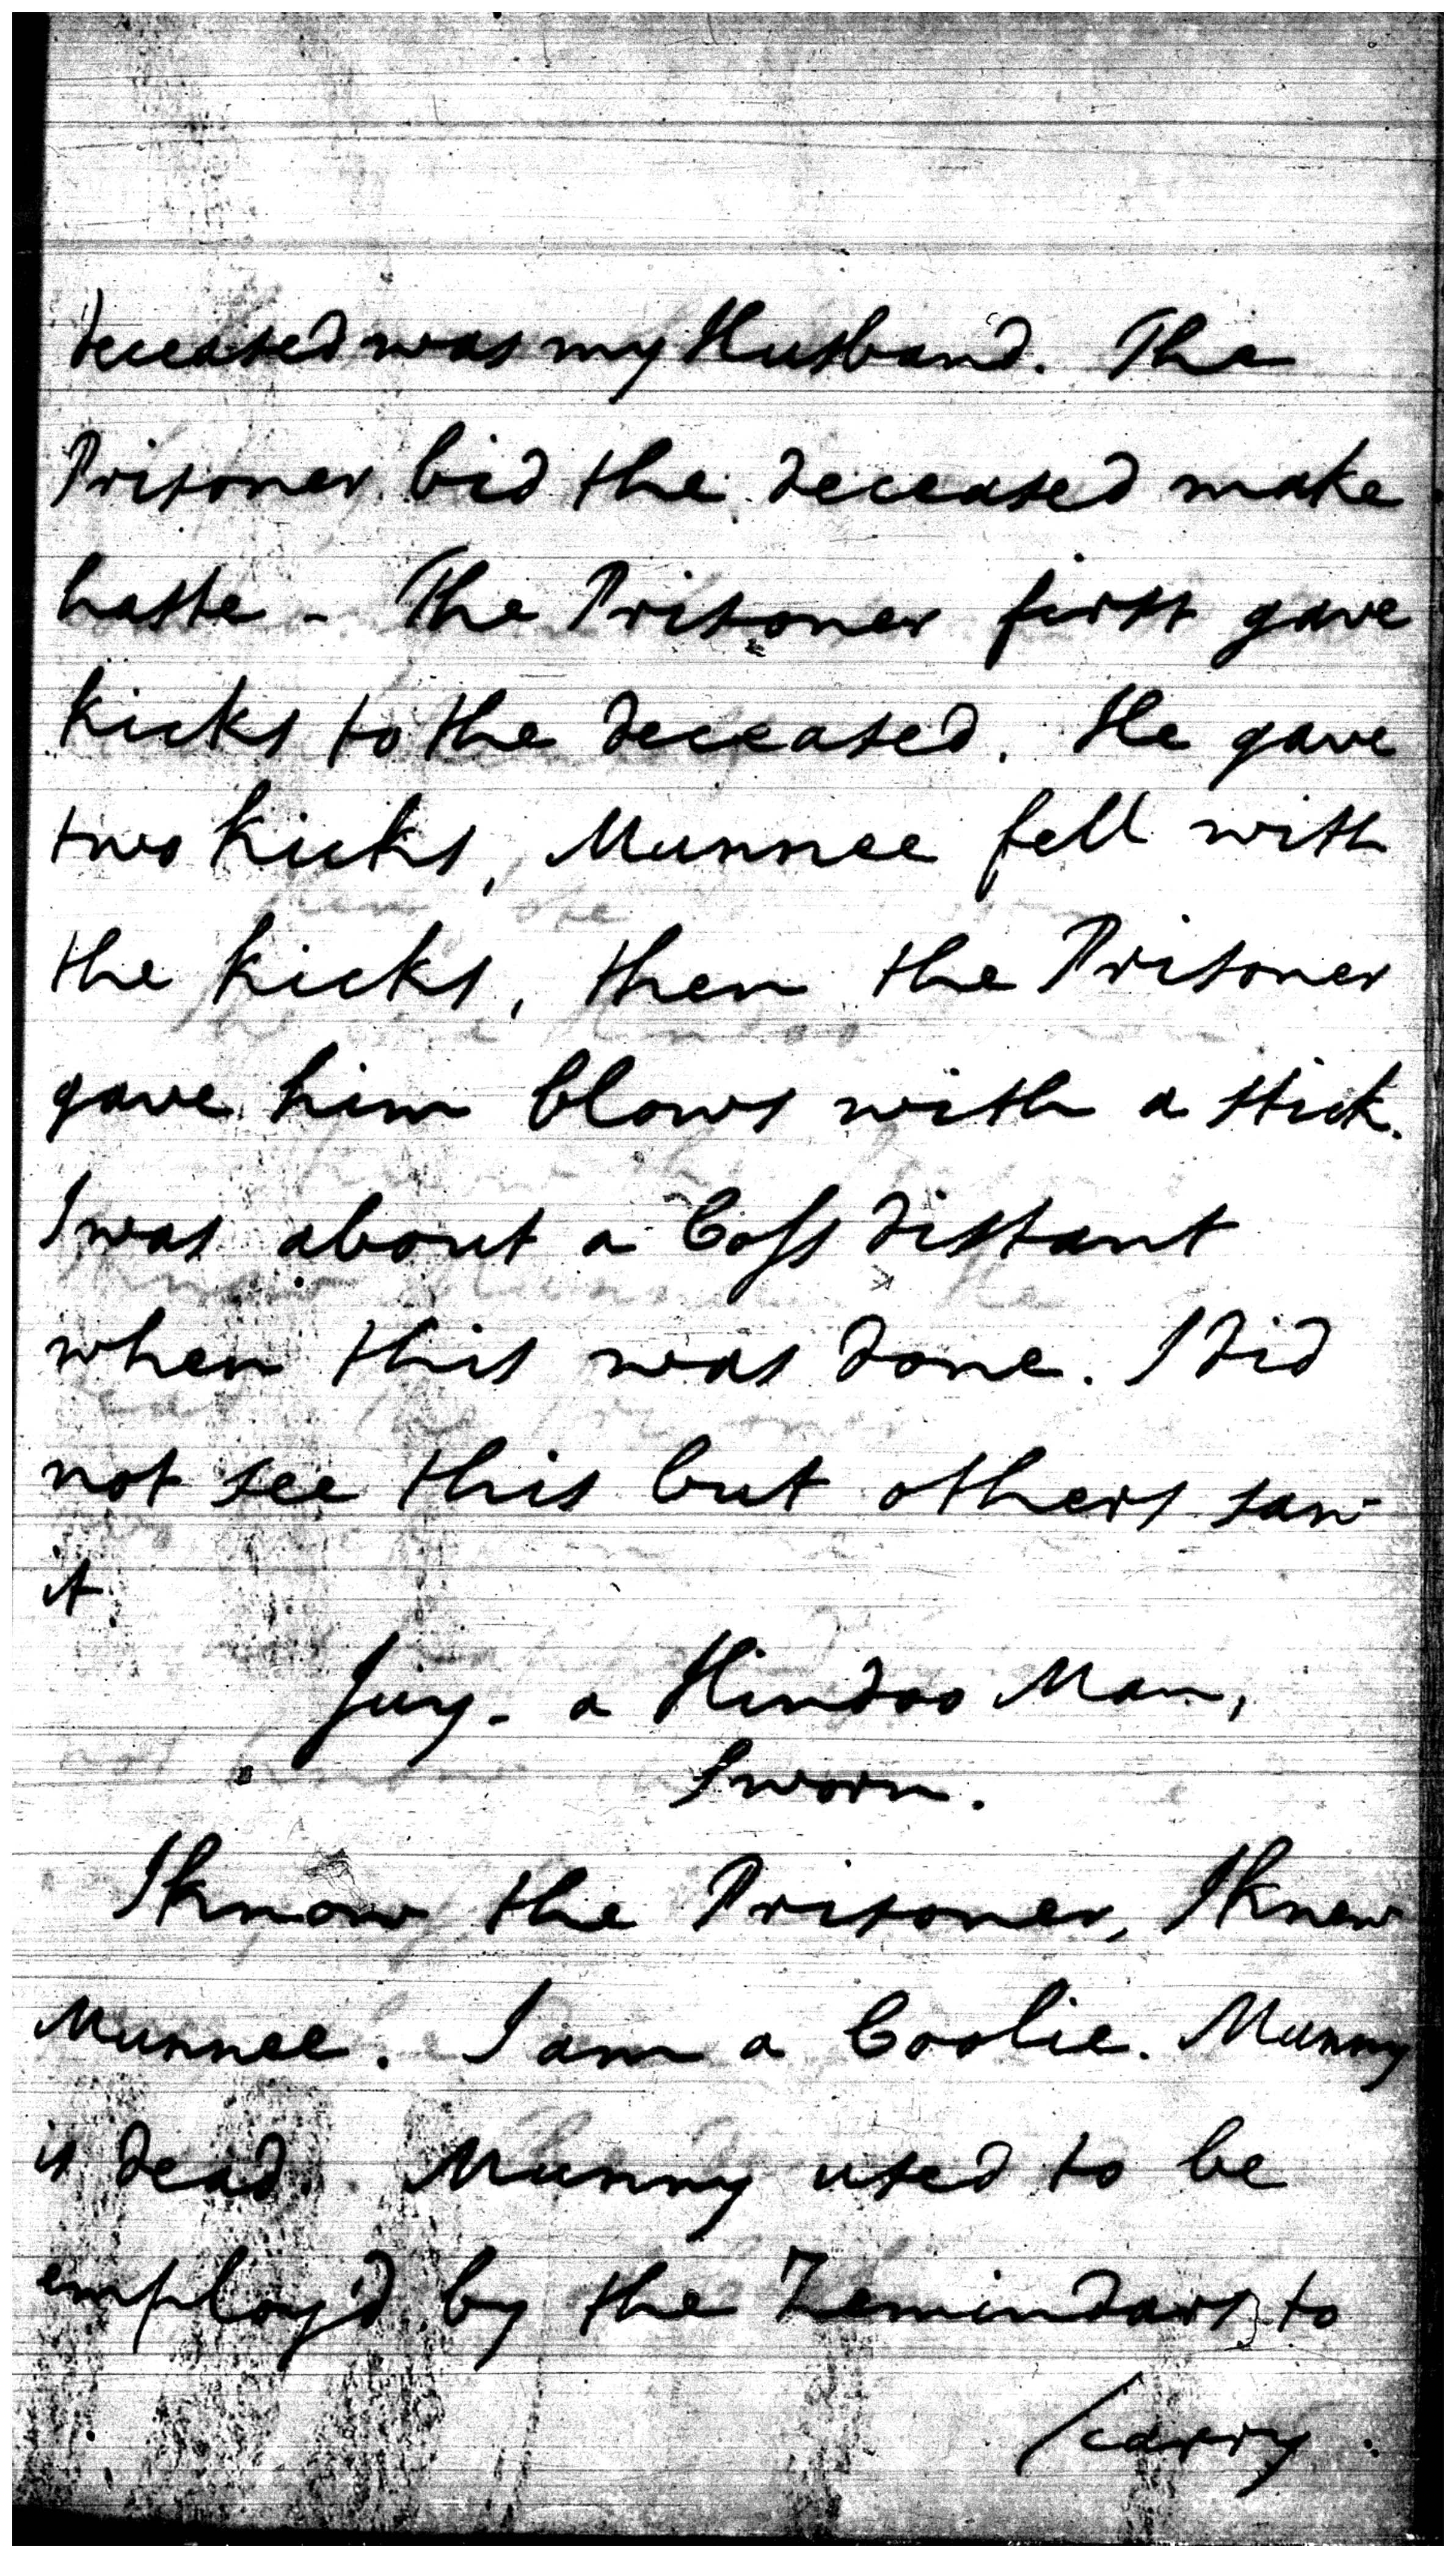 deceased was my Husband. The
Prisoner bid the deceased make
haste - The Prisoner first gave
kicks to the deceased. He gave
two kicks, Munnee fell with
the kicks, then the Prisoner
gave him blows with a stick.
I was about a Coss distant
when this was done. I did
not see this but others saw
it
a Hindoo Man,
Sworn.
I know the Prisoner, I knew
Munnee. I am a Coolie. Munny
is dead. Munny used to be
employ'd by the Zemindars to
/carry